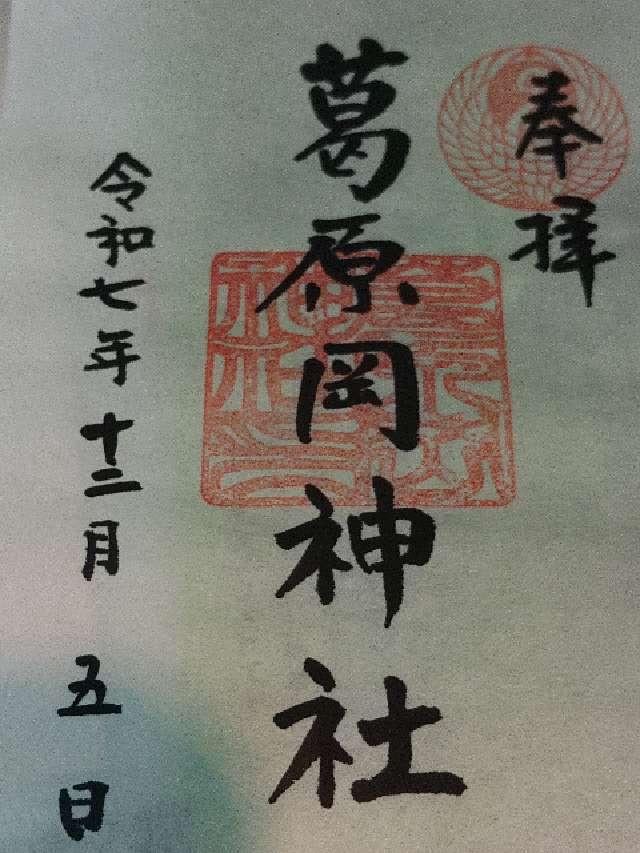 奉拝
葛原岡神社
令和七年十二月五日